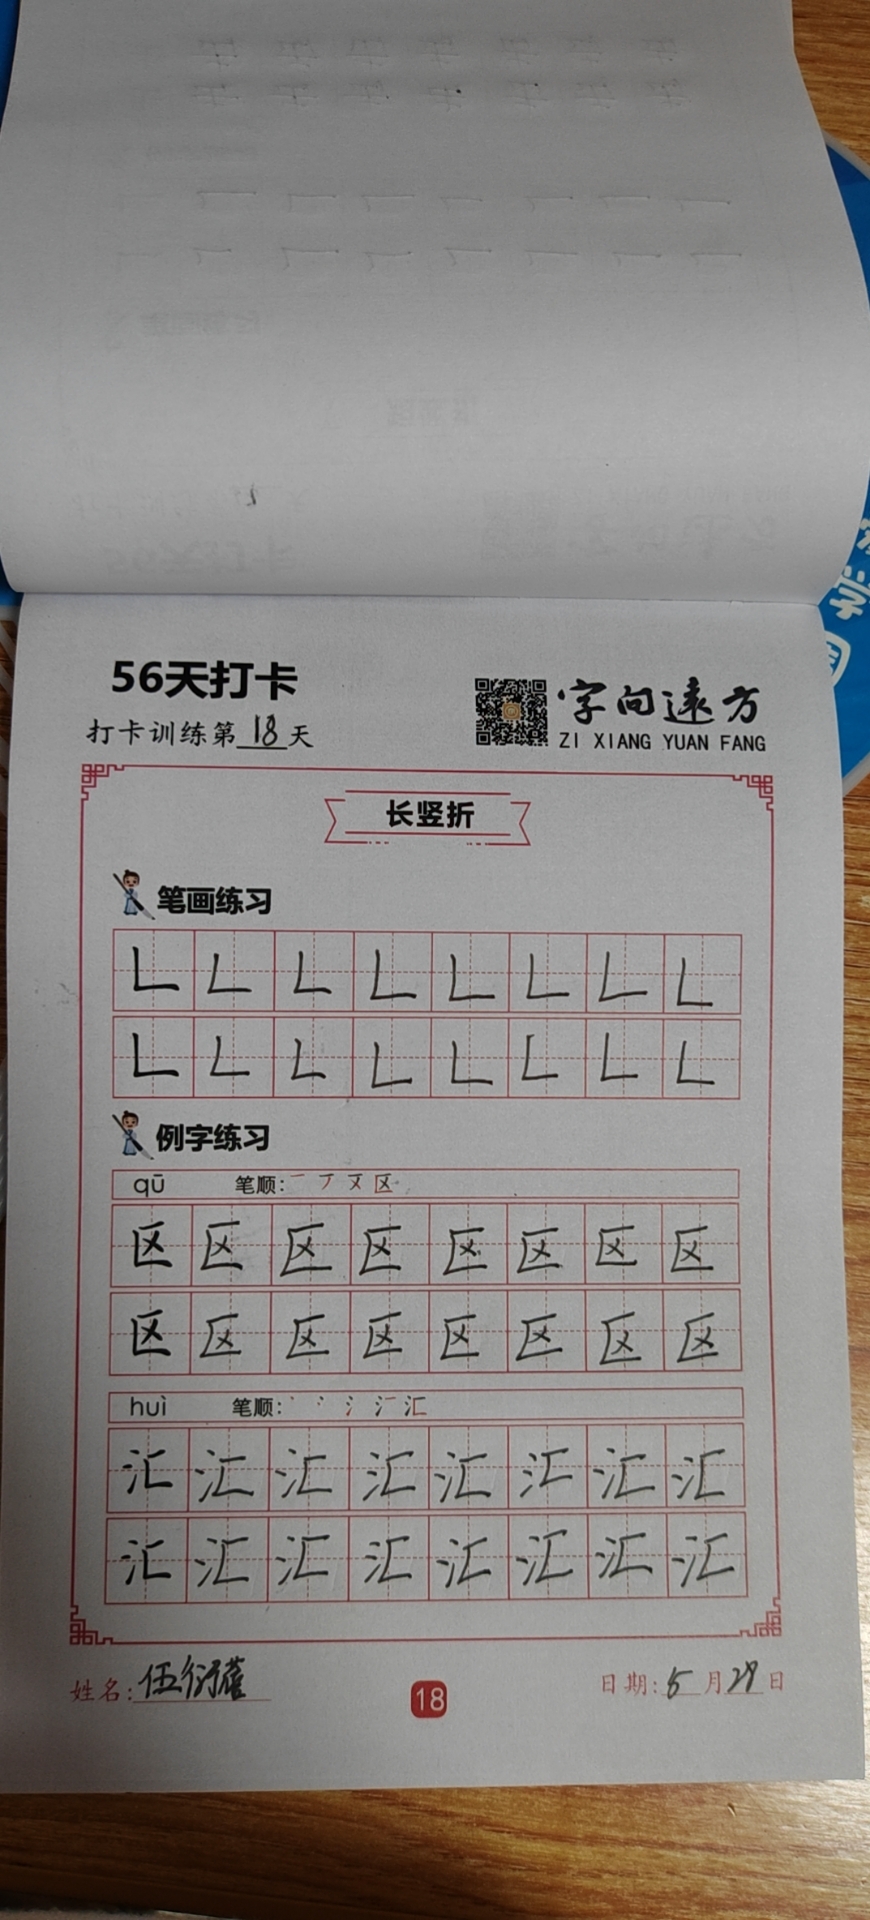 56天打卡
打卡训练第18天
字向远方
ZI XIANG YUAN FANG
长竖折
笔画练习
𠃊 𠃊 𠃊 𠃊 𠃊 𠃊 𠃊 𠃊
𠃊 𠃊 𠃊 𠃊 𠃊 𠃊 𠃊 𠃊
例字练习
qū 笔顺: 一 丆 区
区 区 区 区 区 区 区 区
区 区 区 区 区 区 区 区
huì 笔顺: 丶 冫 氵 汇
汇 汇 汇 汇 汇 汇 汇 汇
汇 汇 汇 汇 汇 汇 汇 汇
姓名:伍衍蓓
18
日期:5月29日
学